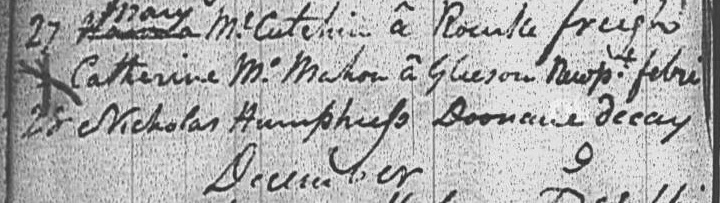 Mary
27 Hanna McCutchin â Rourke freigh
Catherine Mc Mahon â Gleeson Newpt. febri
28 Nicholas Humphress Doonane decay
December 9